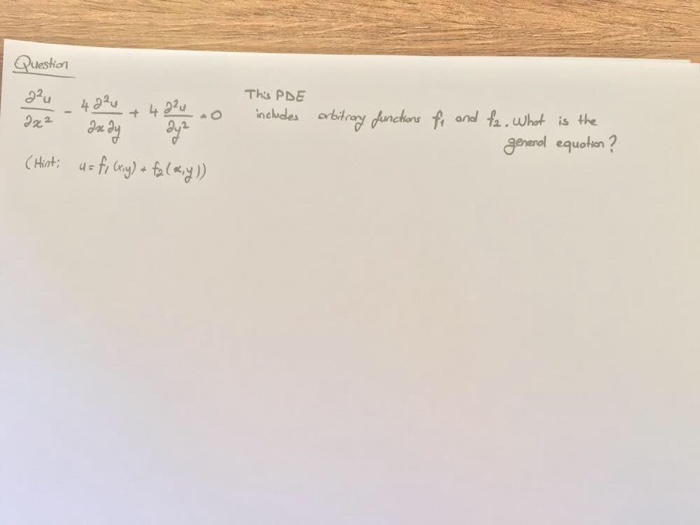 Question
∂²u/∂x² - 4 ∂²u/∂x∂y + 4 ∂²u/∂y² = 0
This PDE
includes arbitrary functions f₁ and f₂. What is the
general equation?
(Hint: u = f₁(x,y) + f₂(x,y))